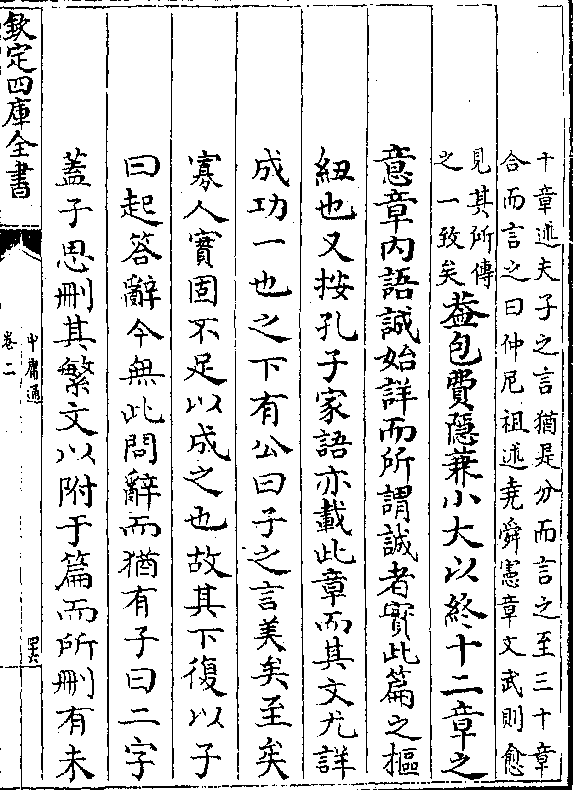 十章述夫子之言猶是分而言之至三十章
合而言之曰仲尼祖述堯舜憲章文武則愈
見其所傳
之一致矣
蓋包費隱兼小大以終十二章之
意章內語誠始詳而所謂誠者實此篇之樞
紐也又按孔子家語亦載此章而其文尤詳
成功一也之下有公曰子之言美矣至矣
寡人實固不足以成之也故其下復以子
曰起答辭今無此問辭而猶有子曰二字
蓋子思刪其繁文以附于篇而所刪有未
欽定四庫全書
中庸通
卷二
四六